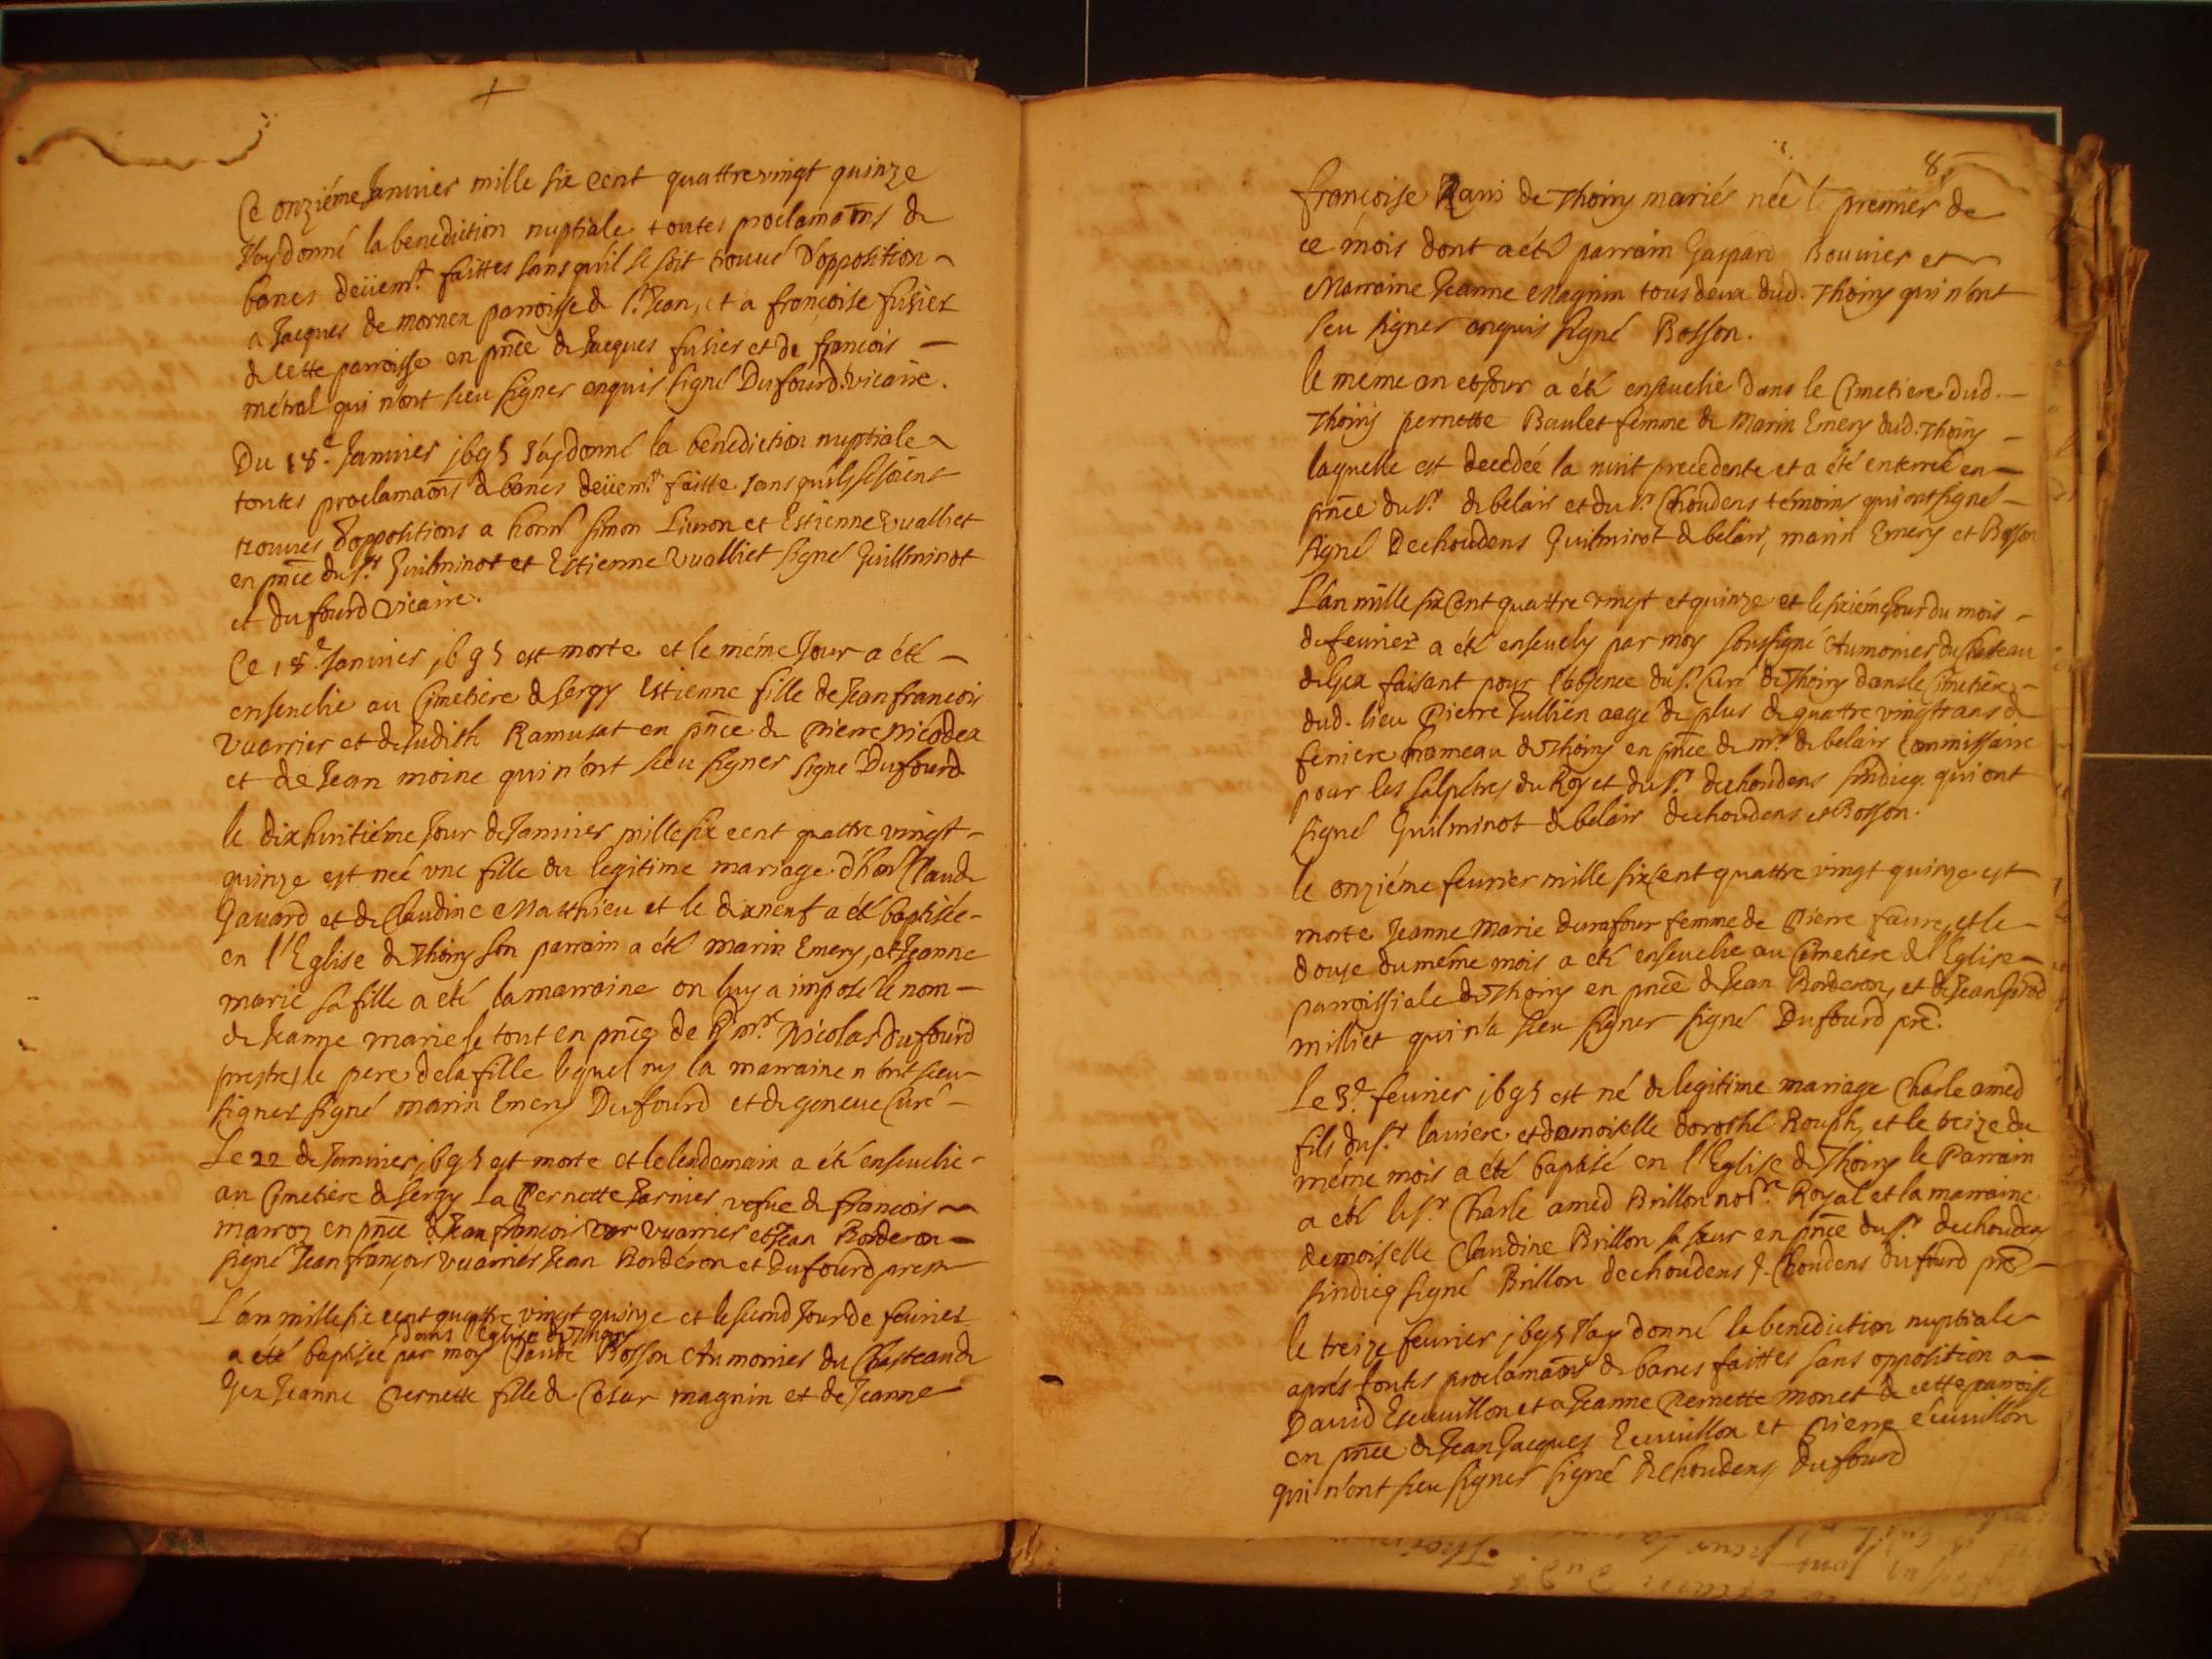 Ce onziéme Janvier mille six cent quattrevingt quinze
J'ay donné la benediction nuptiale toutes proclamaõns de
bancs deüemt faittes sans qu'il se soit trouué d'opposition
a Jacques de mornex parroisse de St Jean, et a françoise fusier
de cette parroisse en pñce de Jacques fusier et de françois
métral qui n'ont sceu signer enquis signé Dufourd vicaire.
Du 18e Janvier 1695 J'ay donné la benediction nuptiale
toutes proclamaõns de bancs deüemt faitte sans qu'ils se soient
trouués d'oppositions a honnê simon Liuron et Estienne vualliet
en pñce du sr Guilminot et Estienne vualliet signé Guillminot
et dufourd vicaire.
Ce 18e Janvier 1695 est morte et le méme Jour a été
enseuelie au Cimetiére de sergy Estienne fille de Jean françois
vuarrier et de Judith Ramusat en pñce de Pierre Nicodex
et de Jean moine qui n'ont sceu signer signé Dufourd
le dixhuitiéme Jour de Janvier mille six cent quattre vingt
quinze est neé vne fille du legitime mariage d'hoñ Claude
Gauard et de Claudine Matthieu et le dixneuf a été baptisée
en l'Eglise de Thoiry son parrain a été marin Emery, et Jeanne
marie sa fille a été la marraine on luy a imposé le nom
de Jeanne marie le tout en pñce de Rd mre Nicolas Dufourd
prestre, le pere de la fille lequel ny la marraine n'ont sceu
signer signé marin Emery Dufourd et de geneue Curé
Le 22 de Janvier 1695 est morte et le lendemain a été enseuelie
au Cimetiére de sergy La Pernette Jarnier vefue de françois
marroz en pñce de Jean françois vuarrier et Jean Borderon
signé Jean françois vuarrier Jean Bordéron et Dufourd prestre
L'an mille six cent quattre vingt quinze et le second Jour de feurier
dans l'Eglise de Thoiry
a été baptisée par moy Claude Bosson Aumonier du Chasteau de
Gex Jeanne Pernette fille de Cesar magnin et de Jeanne
8
françoise Raui de Thoiry mariés née le premier de
ce mois dont a été parrain Gaspard Bouuier et
Marraine Jeanne Magnin tous deux dud. Thoiry qui n'ont
sceu signer enquis signé Bosson.
le méme an et Jour a été enseuelie dans le Cimetiere dud.
Thoiry pernette Baulet femme de Marin Emery dud. Thoiry
laquelle est decedée la nuit precedente et a été enterrée en
pñce du sr de belair et du sr Choudens témoins qui ont signé
signé Dechoudens Guilminot de belair, marin Emery et Bosson
L'an mille six Cent quattre vingt et quinze et le sixiéme Jour du mois
de feurier a été enseuely par moy soussigné Aumonier du Chateau
de Gex faisant pour l'absence du sr Curé de Thoiry dans le Cimetiére
dud. lieu Pierre Jullien aagé de plus de quattre vingt ans de
feniere hameau de Thoiry en pñce de mr de belair Commissaire
pour les salpétres du Roy et du sr dechoudens sindicq. qui ont
signé Guilminot de belair dechoudens et Bosson.
le onziéme feurier mille six Cent quattre vingt quinze est
morte Jeanne Marie durafour femme de Pierre faure, et le
douze du méme mois a été enseuelie au Cimetiére de l'Eglise
parroissiale de Thoiry en pñce de Jean Borderon, et de Jean
milliet qui n'a sceu signer signé Dufourd prê.
Le 3e feurier 1695 est né de legitime mariage Charle amed
fils du sr lauiere et damoiselle dorothé Rouph, et le treize du
méme mois a été baptisé en l'Eglise de Thoiry le Parrain
a été le sr Charle amed Brillon notre Royal et la marraine
demoiselle Claudine Brillon sa sœur en pñce du sr dechoudens
sindicq signé Brillon dechoudens Choudens dufourd prê
le treize feurier 1695 J'ay donné la benediction nuptiale
aprés toutes proclamaõns de bancs faittes sans opposition a
Dauid Escuuillon et a Jeanne Pernette monet de cette parroisse
en pñce de Jean Jacques Ecuuillon et Pierre écuuillon
qui n'ont sceu signer signé dechoudens Dufourd